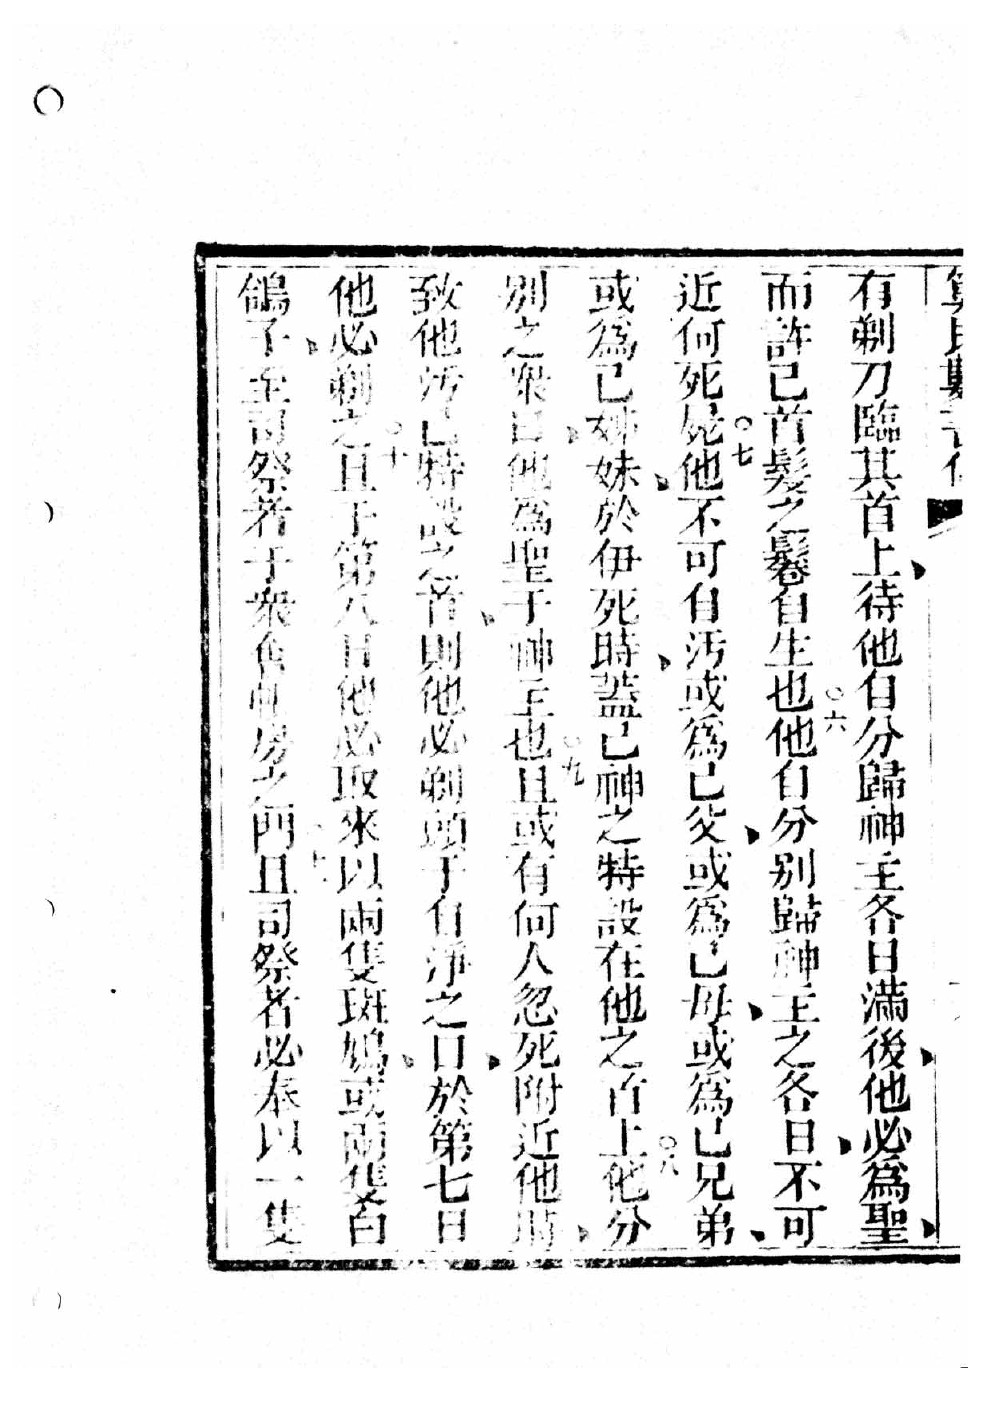 算民數書傳
有剃刀臨其首上待他自分歸神主各日滿後他必為聖
而許己首髮之鬈自生也○六他自分別歸神主之各日不可
近何死屍○七他不可自汚或為己父或為己母或為己兄弟
或為己姊妹於伊死時蓋己神之特設在他之首上○八他分
別之衆日他為聖于神主也○九且或有何人忽死附近他時
致他汚己特設之首則他必剃頭于自淨之日於第七日
他必剃之○十且于第八日他必取來以兩隻斑鳩或兩隻白
鴿子至司祭者于衆會帳房之門且司祭者必奉以一隻